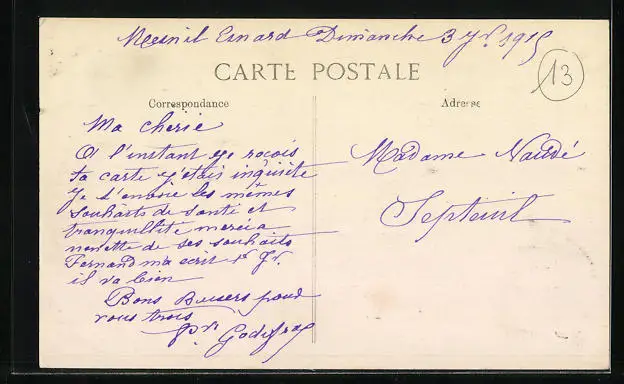 Mesnil Esnard Dimanche 3 Jr 1915
13
CARTE POSTALE
Correspondance
Adresse
Ma cherie
A l'instant je reçois
ta carte j'étais inquiète
Je t'envoie les mêmes
souhaits de santé et
tranquillité merci a
nenette de ses souhaits
Fernand ma ecrit 1r Jr.
il va bien
Bons Baisers pour
vous trois
Madame Naudé
Septeuil